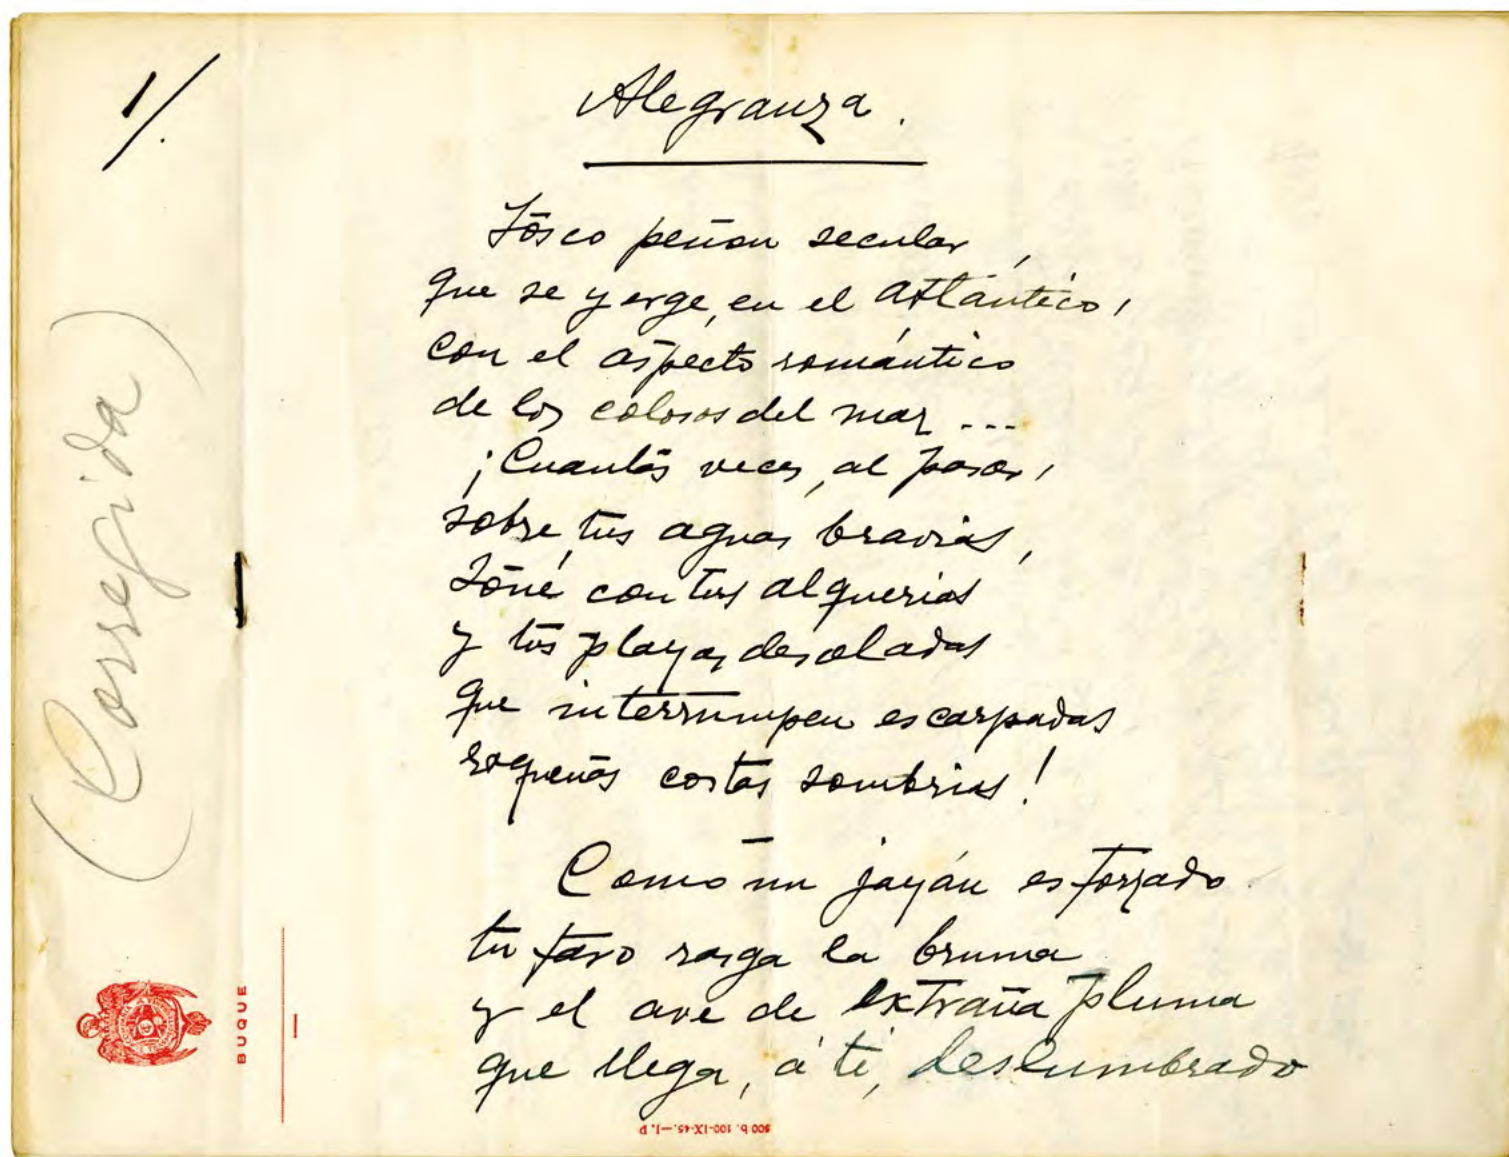 1/.
Alegranza.
Tosco peñon secular,
que se yerge, en el atlántico,
con el aspecto romántico
de los colosos del mar ...
¡Cuantas veces, al pasar,
sobre tus aguas bravias,
soñé con tus alquerias
y tus playas desoladas
que interrumpen escarpadas
roqueñas costas sombrias!
Como un jayán esforzado
tu faro rasga la bruma
y el ave de extraña pluma
que llega, á ti, deslumbrado
(Corregida)
BUQUE
500 b. 100-IX-45.—I. D